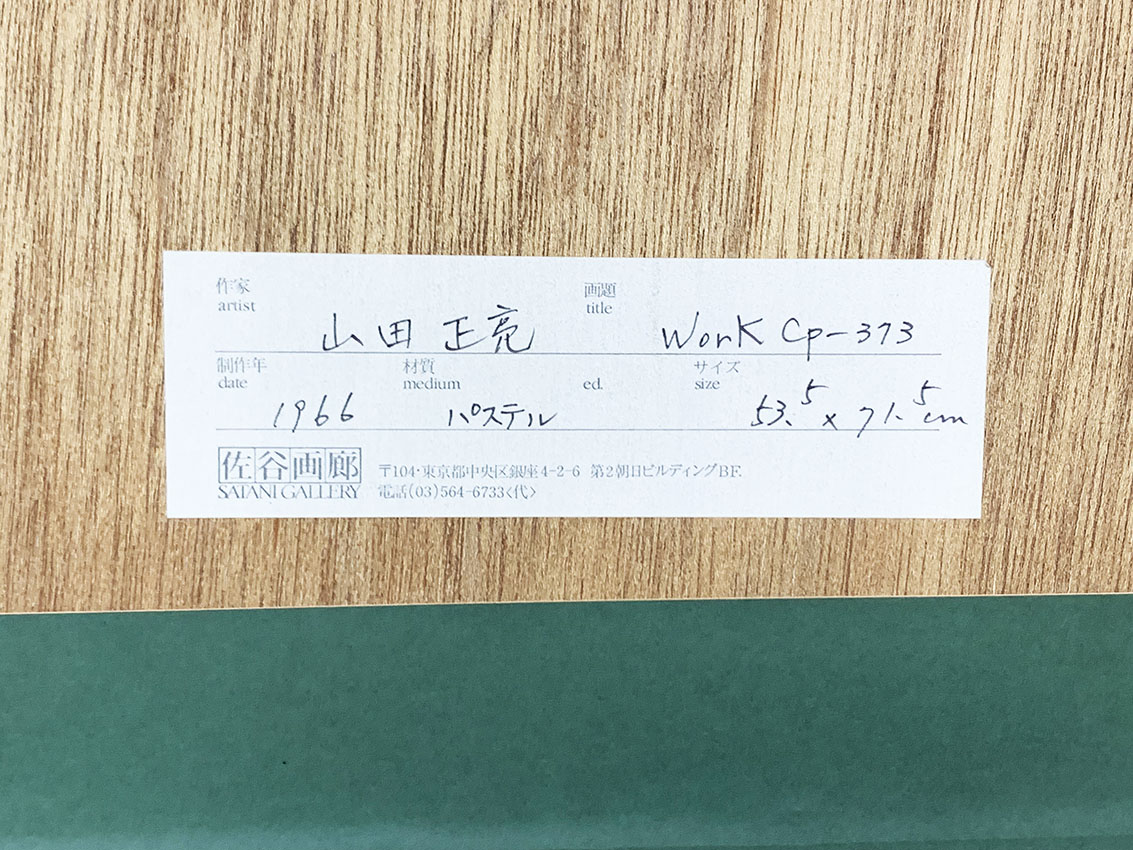 作家 画題
artist title
山田 正亮 Work Cp-373
制作年 材質 サイズ
date medium ed. size
1966 パステル 53.5 x 71.5cm
佐谷画廊
SATANI GALLERY
〒104・東京都中央区銀座4-2-6 第2朝日ビルディングBF.
電話(03)564-6733<代>